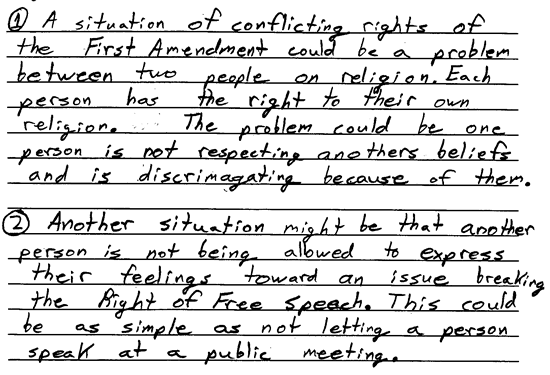 ① A situation of conflicting rights of
the First Amendment could be a problem
between two people on religion. Each
person has the right to their own
religion. The problem could be one
person is not respecting anothers beliefs
and is discrimagating because of them.
② Another situation might be that another
person is not being allowed to express
their feelings toward an issue breaking
the Right of Free Speech. This could
be as simple as not letting a person
speak at a public meeting.